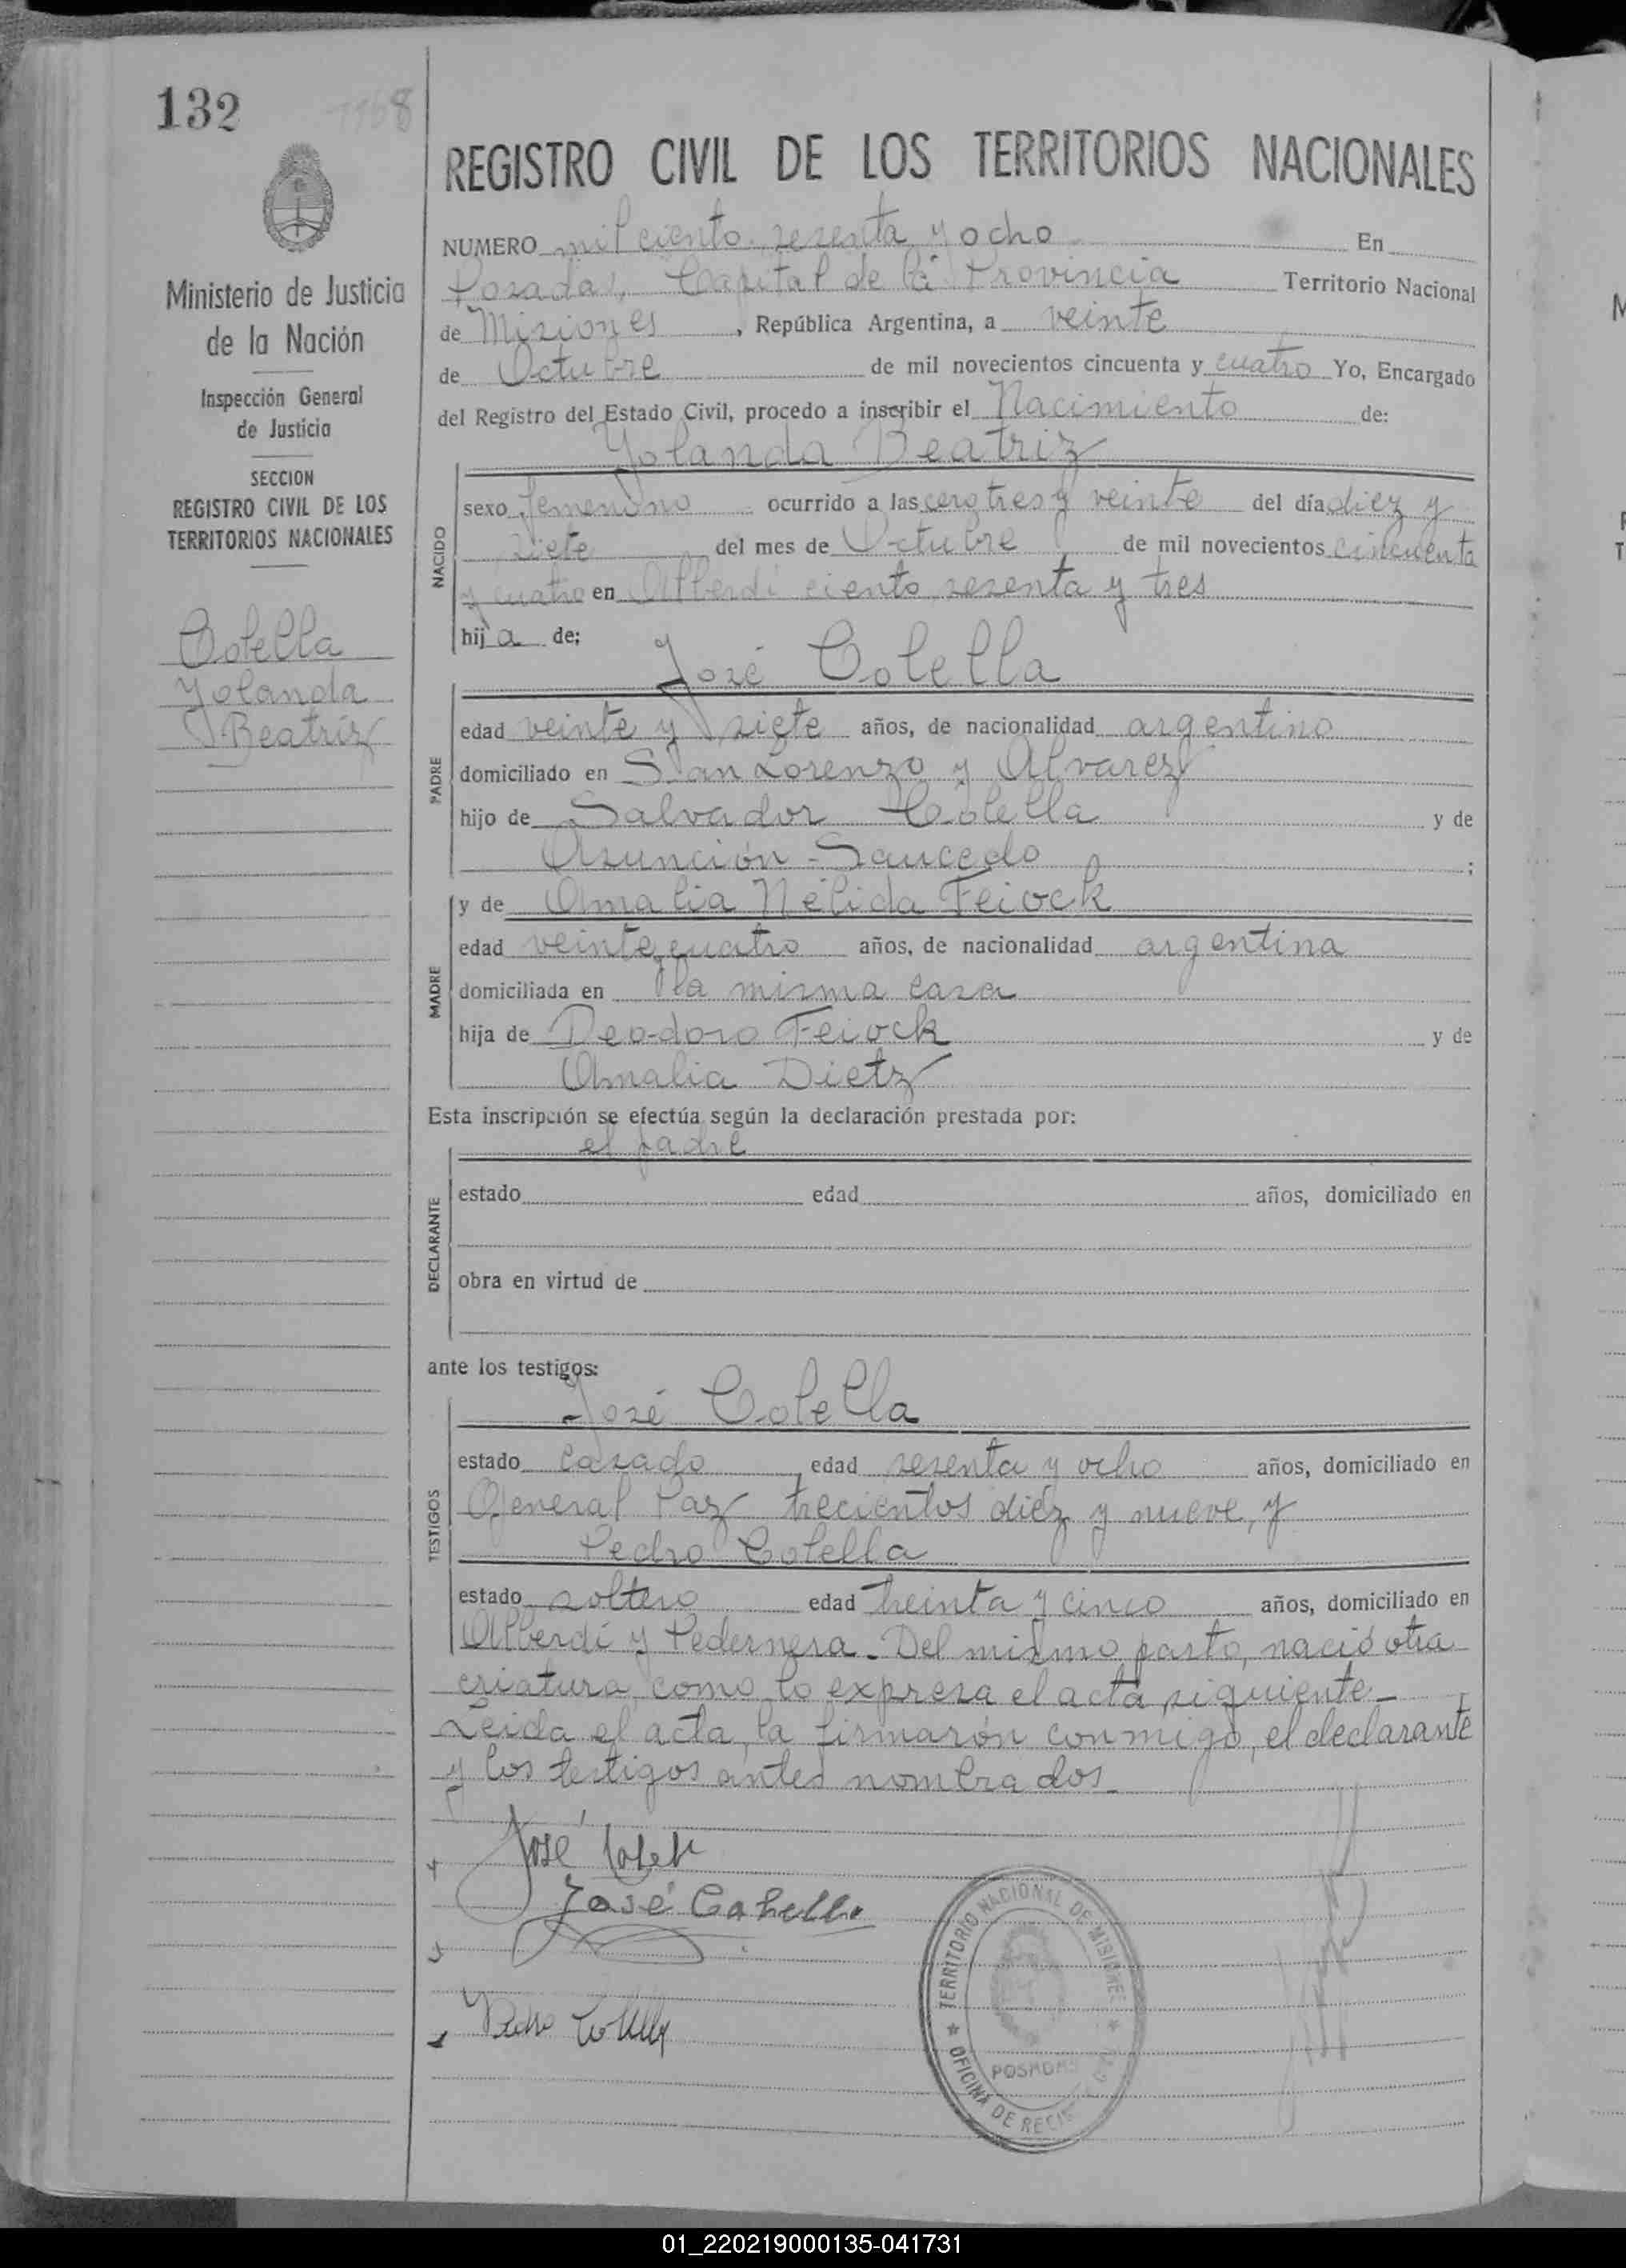 132
1168
REGISTRO CIVIL DE LOS TERRITORIOS NACIONALES
Ministerio de Justicia
de la Nación
Inspección General
de Justicia
SECCION
REGISTRO CIVIL DE LOS
TERRITORIOS NACIONALES
Colella
Yolanda
Beatriz
NUMERO mil ciento sesenta y ocho En
Posadas, Capital de la Provincia Territorio Nacional
de Misiones, República Argentina, a veinte
de Octubre de mil novecientos cincuenta y cuatro Yo, Encargado
del Registro del Estado Civil, procedo a inscribir el Nacimiento de:
Yolanda Beatriz
NACIDO
sexo femenino ocurrido a las cero tres y veinte del día diez y
siete del mes de Octubre de mil novecientos cincuenta
y cuatro en Alberdi ciento sesenta y tres
hija de;
José Colella
PADRE
edad veinte y siete años, de nacionalidad argentino
domiciliado en San Lorenzo y Alvarez
hijo de Salvador Colella y de
Asunción Saucedo ;
y de Amalia Nélida Feiock
MADRE
edad veinte y cuatro años, de nacionalidad argentina
domiciliada en la misma casa
hija de Deodoro Feiock y de
Amalia Dietz
Esta inscripción se efectúa según la declaración prestada por:
el padre
DECLARANTE
estado edad años, domiciliado en
obra en virtud de
ante los testigos:
José Colella
TESTIGOS
estado casado edad sesenta y ocho años, domiciliado en
General Paz trecientos diez y nueve, y
Pedro Colella
estado soltero edad treinta y cinco años, domiciliado en
Alberdi y Pedernera. Del mismo parto, nació otra
criatura, como lo expresa el acta siguiente
Leida el acta, la firmarón conmigo, el declarante
y los testigos antes nombrados
José
José
Pedro
TERRITORIO NACIONAL DE MISIONES
POSADAS
OFICINA DE
01_220219000135-041731